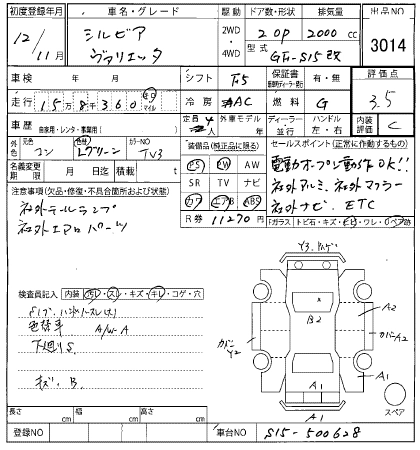 初度登録年月 車名・グレード 駆動 ドア数・形状 排気量 出品NO
12/11月 シルビア ヴァリエッタ 2WD・4WD 2 OP 2000 cc 3014
型式 GF-S15改
車検 年 月 シフト F5 保証書 有・無 評価点 3.5
走行 15万8千360 km マイル 冷房 AAC 燃料 G
車歴 自家用・レンタ・事業用( ) 定員 4人 外車モデル 年 ディーラー・並行 ハンドル 左・右 内装評価 C
元色 コン 色替 Lグリーン カラーNO TV3
装備品(純正品に限る) セールスポイント(正常に作動するもの)
名義変更期限 月 日迄 積載 t
PS PW AW
SR TV ナビ
カワ エアB ABS
R券 11270円
電動オープン動作OK!!
社外アルミ、社外マフラー
社外ナビ、ETC
注意事項(欠品・修復・不具合箇所および状態)
社外テールランプ
社外エアロパーツ
Fガラス トビ石・キズ・ヒビ・ワレ・リペア跡
検査員記入 内装 汚レ・スレ・キズ・キレ・コゲ・穴
色替车 A/W A
下廻りS
キズ、B
Y2 A B2 A2 カバンA2 A1 A1 A1
スペア
長さ cm 幅 cm 高さ cm
登録NO 車台NO S15-500628